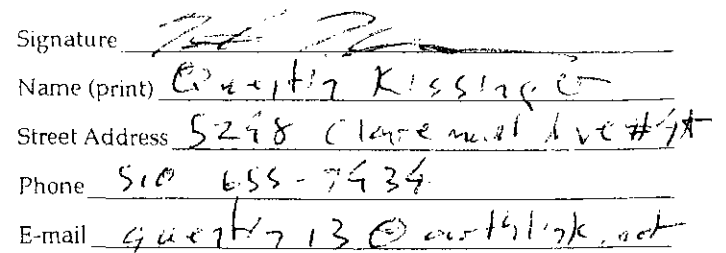 Signature
Name (print) Quentin Kissinger
Street Address 5248 Claremont Ave #4A
Phone 510 655-7434
E-mail quentin13@earthlink.net